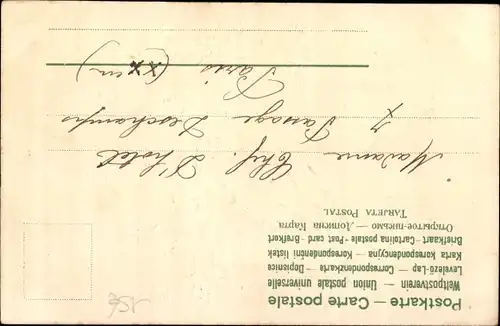 Postkarte — Carte postale
Weltpostverein — Union postale universelle
Levelező-Lap — Correspondenzkarte — Dopisnice
Karta korespondencyjna — Korespondenční lístek
Briefkaart — Cartolina postale — Post card — Brefkort
Открытое письмо — Дописна Карта
TARJETA POSTAL
Madame Chf. D'hotel
7 Passage Deschamps
Paris (XXem)